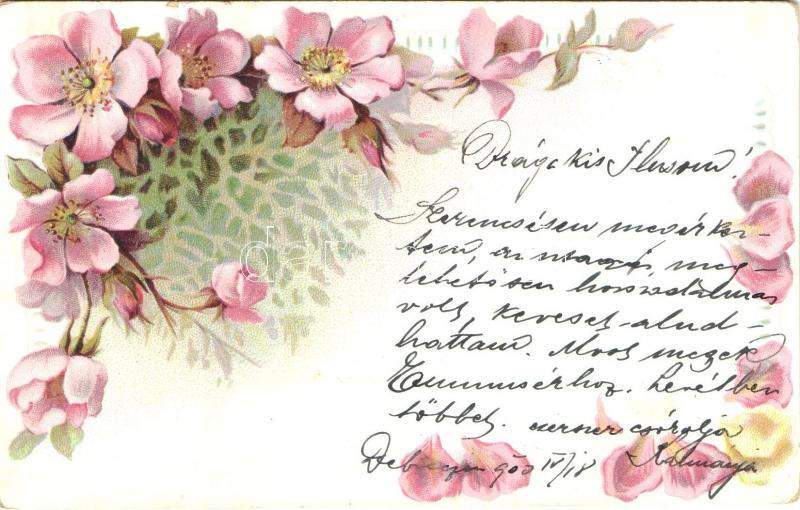 Drága kis Ilusom!
Szerencsésen megérkez-
tem, az utazás, meg-
lehetősen hosszadalmas
volt, keveset alud-
hattam. Most megyek
hoz. Levélben
többet. ezerszer csókolja
900 IV/18
dar